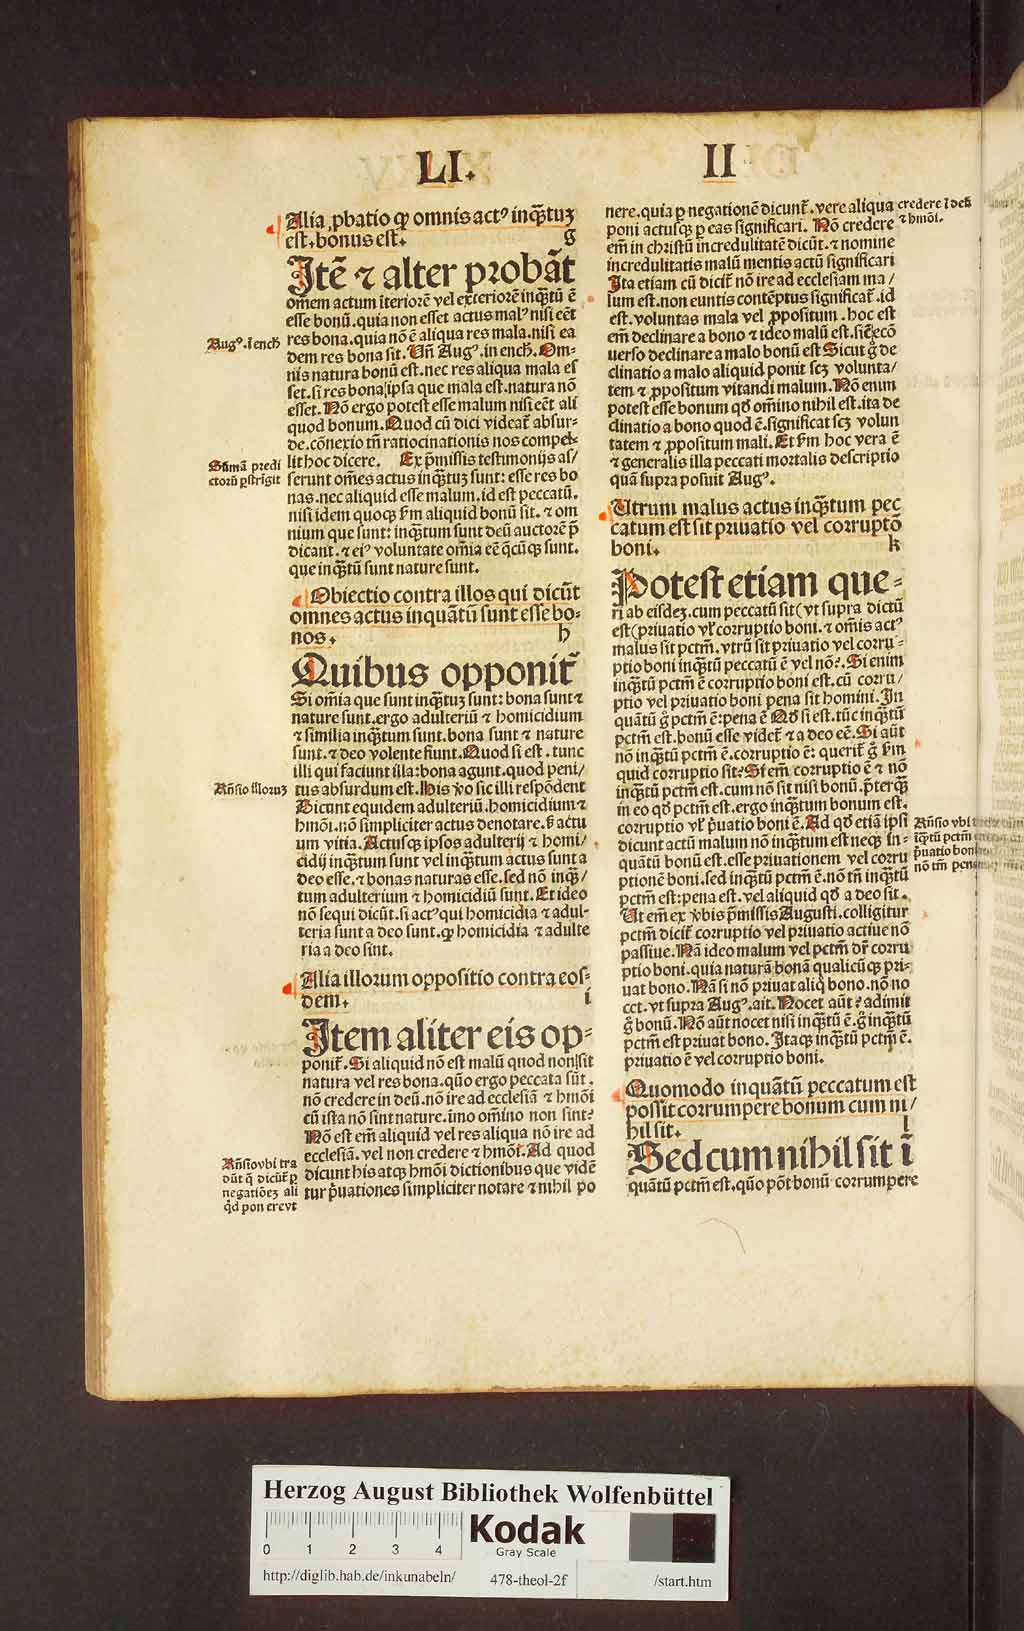 LI.
II
Alia ꝓbatio ꝙ omnis actꝰ inqͣꝫtuꝫ
est. bonus est. g
Itē ⁊ alter probāt
omēm actum īteriorē vel exteriorē inqͣꝫtū ē
esse bonū. quia non esset actus malꝰ nisi eēt
res bona. quia nō ē aliqua res mala. nisi ea
dem res bona sit. Vn̄ Augꝰ. in ench̄. Om-
nis natura bonū est. nec res aliqua mala es
set. si res bona ipsa que mala est. natura nō
esset. Nō ergo potest esse malum nisi eēt ali
quod bonum. Quod cū dici videat̄ absur-
de. cōnexio tn̄ ratiocinationis nos compel-
lit hoc dicere. Ex p̄missis testimonijs as/
serunt om̄es actus inqͣꝫtuꝫ sunt: esse res bo
nas. nec aliquid esse malum. id est peccatū.
nisi idem quoqꝫ ẜm aliquid bonū sit. ⁊ om
nium que sunt: inqͣꝫtum sunt deū auctorē p̄
dicant. ⁊ eiꝰ voluntate om̄ia eē qͥcūqꝫ sunt.
que inqͣꝫtū sunt nature sunt.
Obiectio contra illos qui dicūt
omnes actus inquātū sunt esse bo-
nos. h
Quibus opponit̄
Si om̄ia que sunt inqͣꝫtuꝫ sunt: bona sunt ⁊
nature sunt. ergo adulteriū ⁊ homicidium
⁊ similia inqͣꝫtum sunt. bona sunt ⁊ nature
sunt. ⁊ deo volente fiunt. Quod si est. tunc
illi qui faciunt illa: bona agunt. quod peni/
tus absurdum est. His v̄o sic illi respōdent
Dicunt equidem adulteriū. homicidium ⁊
hmōi. nō simpliciter actus denotare. ẜ actu
um vitia. Actusqꝫ ipsos adulterij ⁊ homi/
cidij inqͣꝫtum sunt vel inqͣꝫtum actus sunt a
deo esse. ⁊ bonas naturas esse. sed nō inqͣꝫ/
tum adulterium ⁊ homicidiū sunt. Et ideo
nō sequi dicūt. si actꝰ qui homicidia ⁊ adul-
teria sunt a deo sunt. ꝙ homicidia ⁊ adulte
ria a deo sint.
Alia illorum oppositio contra eos-
dem. i
Item aliter eis op-
ponit̄. Si aliquid nō est malū quod non sit
natura vel res bona. quō ergo peccata sūt.
nō credere in deū. nō ire ad ecclesiā ⁊ hmōi
cū ista nō sint nature. imo om̄ino non sint?
Nō est em̄ aliquid vel res aliqua nō ire ad
ecclesiā. vel non credere ⁊ hmōi. Ad quod
dicunt his atqꝫ hmōi dictionibus que vidē
tur p̄uationes simpliciter notare ⁊ nihil po
Augꝰ. ī ench̄
Sūmā predi
ctorū ꝑstrīgit
Rn̄sio illoruꝫ
Rn̄sio vbi tra
dūt q̄ dicūt̄ ꝑ
negatiōeꝫ ali
qͥd pon ere vt
nere. quia ꝑ negationē dicunt̄. vere aliqua
poni actusqꝫ ꝑ eas significari. Nō credere
em̄ in christū incredulitatē dicūt. ⁊ nomine
incredulitatis malū mentis actū significari
Ita etiam cū dicit̄ nō ire ad ecclesiam ma/
lum est. non euntis contēptus significat̄. id
est. voluntas mala vel ꝓpositum. hoc est
em̄ declinare a bono ⁊ ideo malū est. sic ecō
uerso declinare a malo bonū est Sicut g̊ de
clinatio a malo aliquid ponit scꝫ volunta/
tem ⁊ ꝓpositum vitandi malum. Nō enim
potest esse bonum qd̄ om̄ino nihil est. ita de
clinatio a bono quod ē. significat scꝫ volun
tatem ⁊ ꝓpositum mali. Et ẜm hoc vera ē
⁊ generalis illa peccati mortalis descriptio
quā supra posuit Augꝰ.
Utrum malus actus inqͣꝫtum pec
catum est sit priuatio vel corruptō
boni. k
Potest etiam que-
ri ab eisdeꝫ. cum peccatū sit (vt supra dictū
est (priuatio vl̄ corruptio boni. ⁊ om̄is actꝰ
malus sit pctm̄. vtrū sit priuatio vel corru-
ptio boni inqͣꝫtū peccatū ē vel nō?. Si enim
inqͣꝫtū pctm̄ ē corruptio boni est. cū corru/
ptio vel priuatio boni pena sit homini. In
quātū g̊ pctm̄ ē: pena ē Qd̄ si est. tūc inqͣꝫtū
pctm̄ est. bonū esse videt̄ ⁊ a deo eē. Si aūt
nō inqͣꝫtū pctm̄ ē. corruptio ē: querit̄ g̊ ẜm
quid corruptio sit? Si em̄ corruptio ē ⁊ nō
inqͣꝫtū pctm̄ est. cum nō sit nisi bonū. p̄terqͣꝫ
in eo qd̄ pctm̄ est. ergo inqͣꝫtum bonum est.
corruptio vl̄ p̄uatio boni ē. Ad qd̄ etiā ipsi
dicunt actū malum nō inqͣꝫtum est neqꝫ in-
quātū bonū est. esse priuationem vel corru
ptionē boni. sed inqͣꝫtū pctm̄ ē. nō tn̄ inqͣꝫtū
pctm̄ est: pena est. vel aliquid qd̄ a deo sit.
Ut em̄ ex v̄bis p̄missis Augusti. colligitur
pctm̄ dicit̄ corruptio vel priuatio actiue nō
passiue. Nā ideo malum vel pctm̄ dr̄ corru
ptio boni. quia naturā bonā qualicūqꝫ pri-
uat bono. Nā si nō priuat aliqͦ bono. nō no
cet. vt supra Augꝰ. ait. Nocet aūt? adimit
g̊ bonū. Nō aūt nocet nisi inqͣꝫtū ē. g̊ inqͣꝫtū
pctm̄ est priuat bono. Itaqꝫ inqͣꝫtū pctm̄ ē.
priuatio ē vel corruptio boni.
Quomodo inquātū peccatum est
possit corrumpere bonum cum ni/
hil sit. l
Sed cum nihil sit ī
quātū pctm̄ est. quō pōt bonū corrumpere
credere ī deū
⁊ hmōi.
Rn̄sio vbi
īqͣꝫtū pctm̄
p̄uatio boni
nō tm̄ pena
Herzog August Bibliothek Wolfenbüttel
0 1 2 3 4
Kodak
Gray Scale
http://diglib.hab.de/inkunabeln/ 478-theol-2f /start.htm